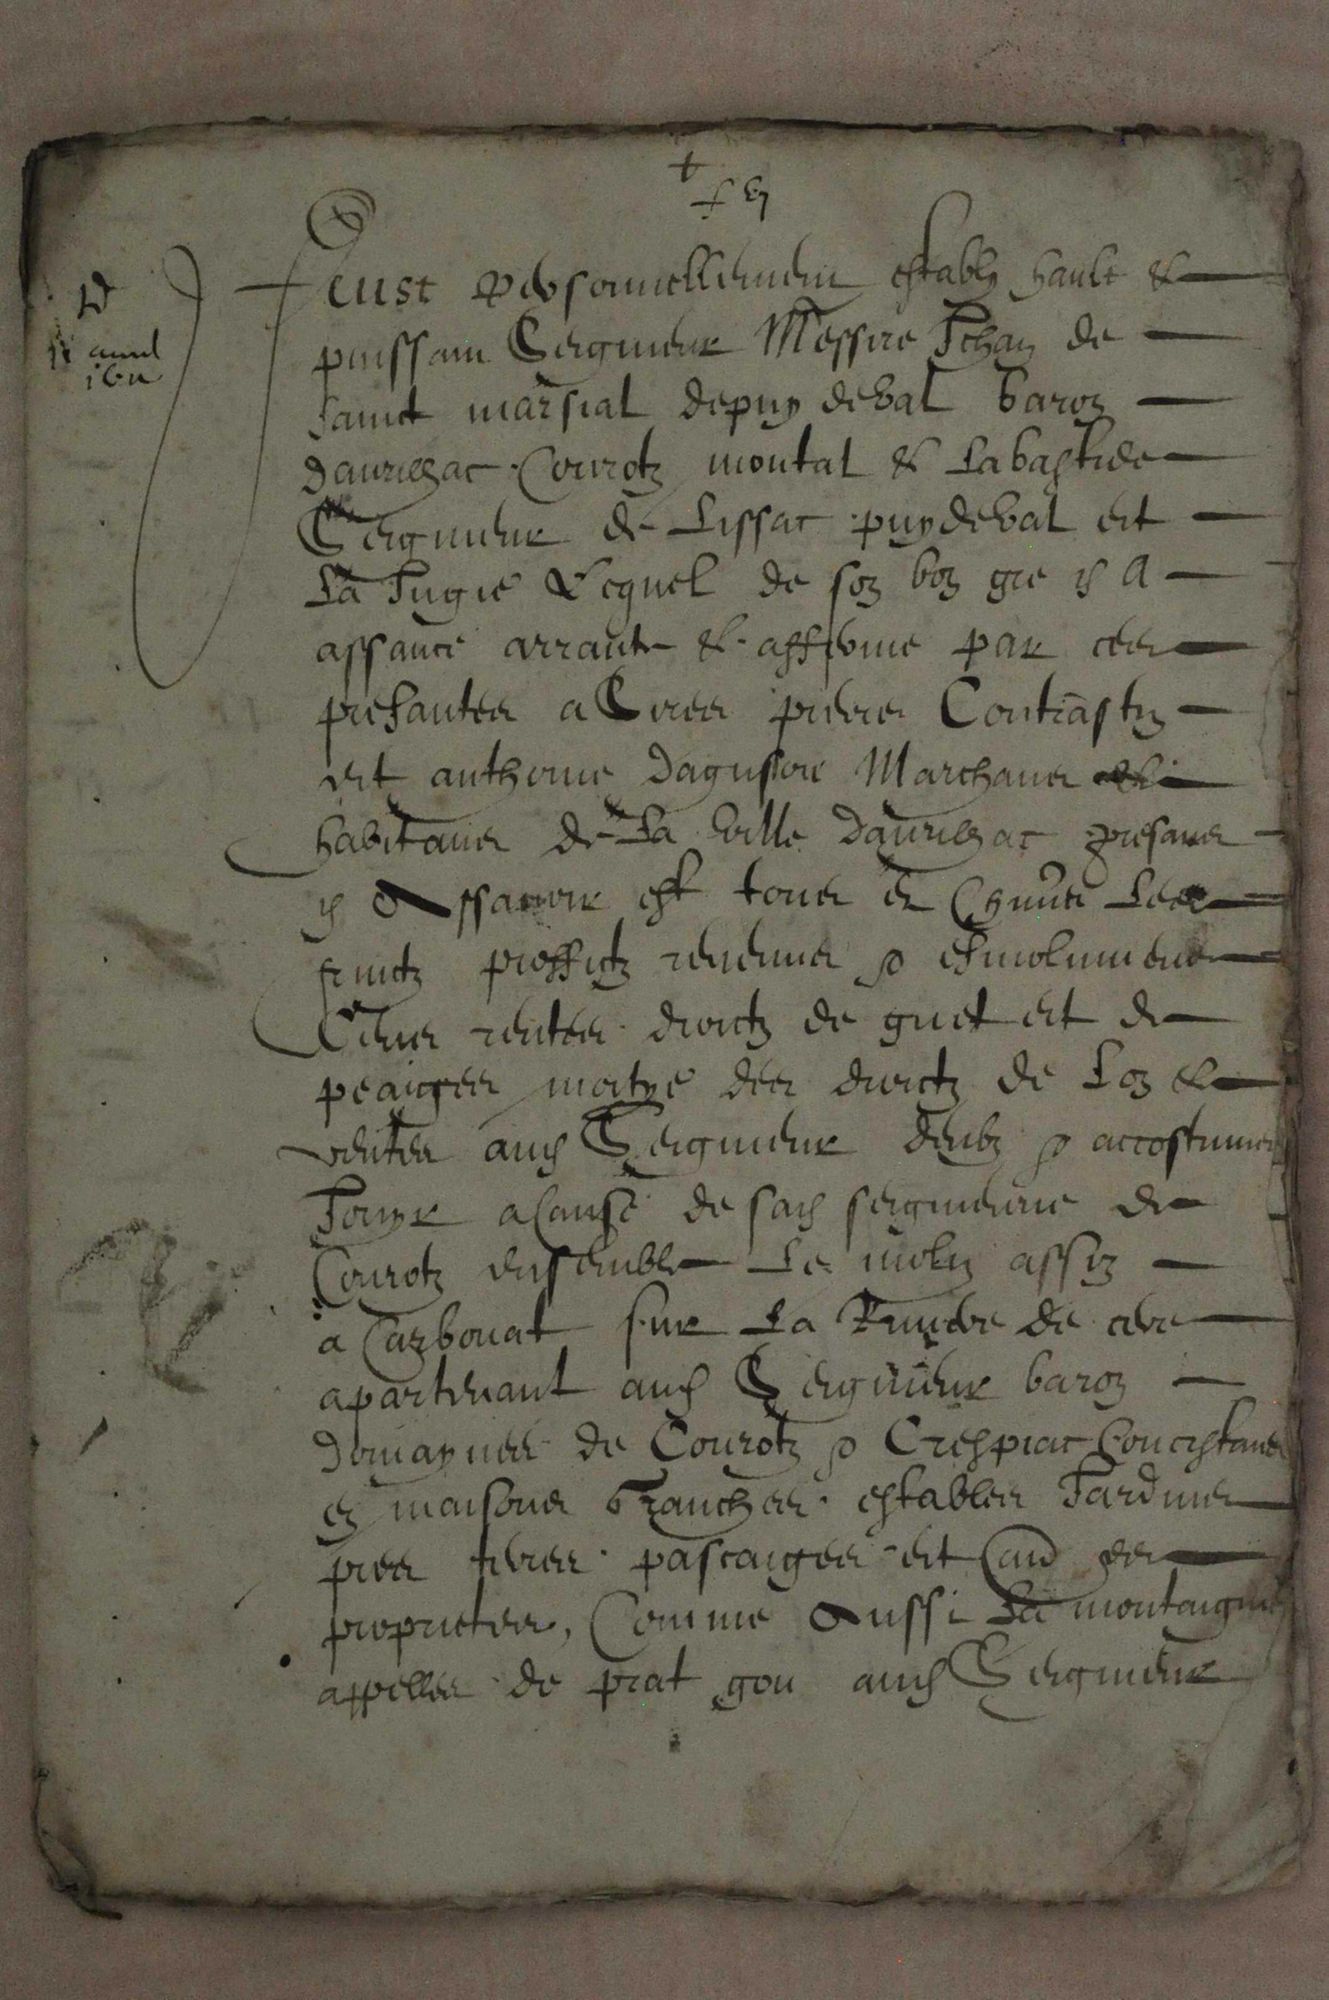 Feust personnellement establÿ hault &
puissant Seigneur Messire Jehan de
sainct marsial depuy deval baron
daurilhac Conrotz montal & Labastide
Seigneur de Lissac puydeval et
La Jugie Lequel de son bon gre il A
assance arrante & afferme par ces
presantes a Sires pierre Contrastin
et anthoine daguisore Marchans
habitans de La ville daurilhac presans
Assavoir est tous et Chuns Les
fruictz proffictz revenus & esmolumens
Cens rentes droictz de guet et de
peaiges moitye des droictz de Loz &
ventes aud Seigneur deubz & accostumes
Jouyr a Cause de sad seigneurie de
Conrotz ensemble Le molin assiz
a Carbonat sur La Riviere de cere
apartenant aud Seigneur baron
domaynes de Conrotz & Crespiac Concistans
en maisons Granches estables Jardins
pres terres pascaiges et aud
proprietes, Comme Aussi La montaigne
appellee de prat gou aud Seigneur